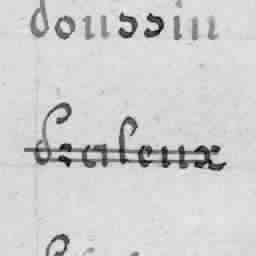 doussin
draleux